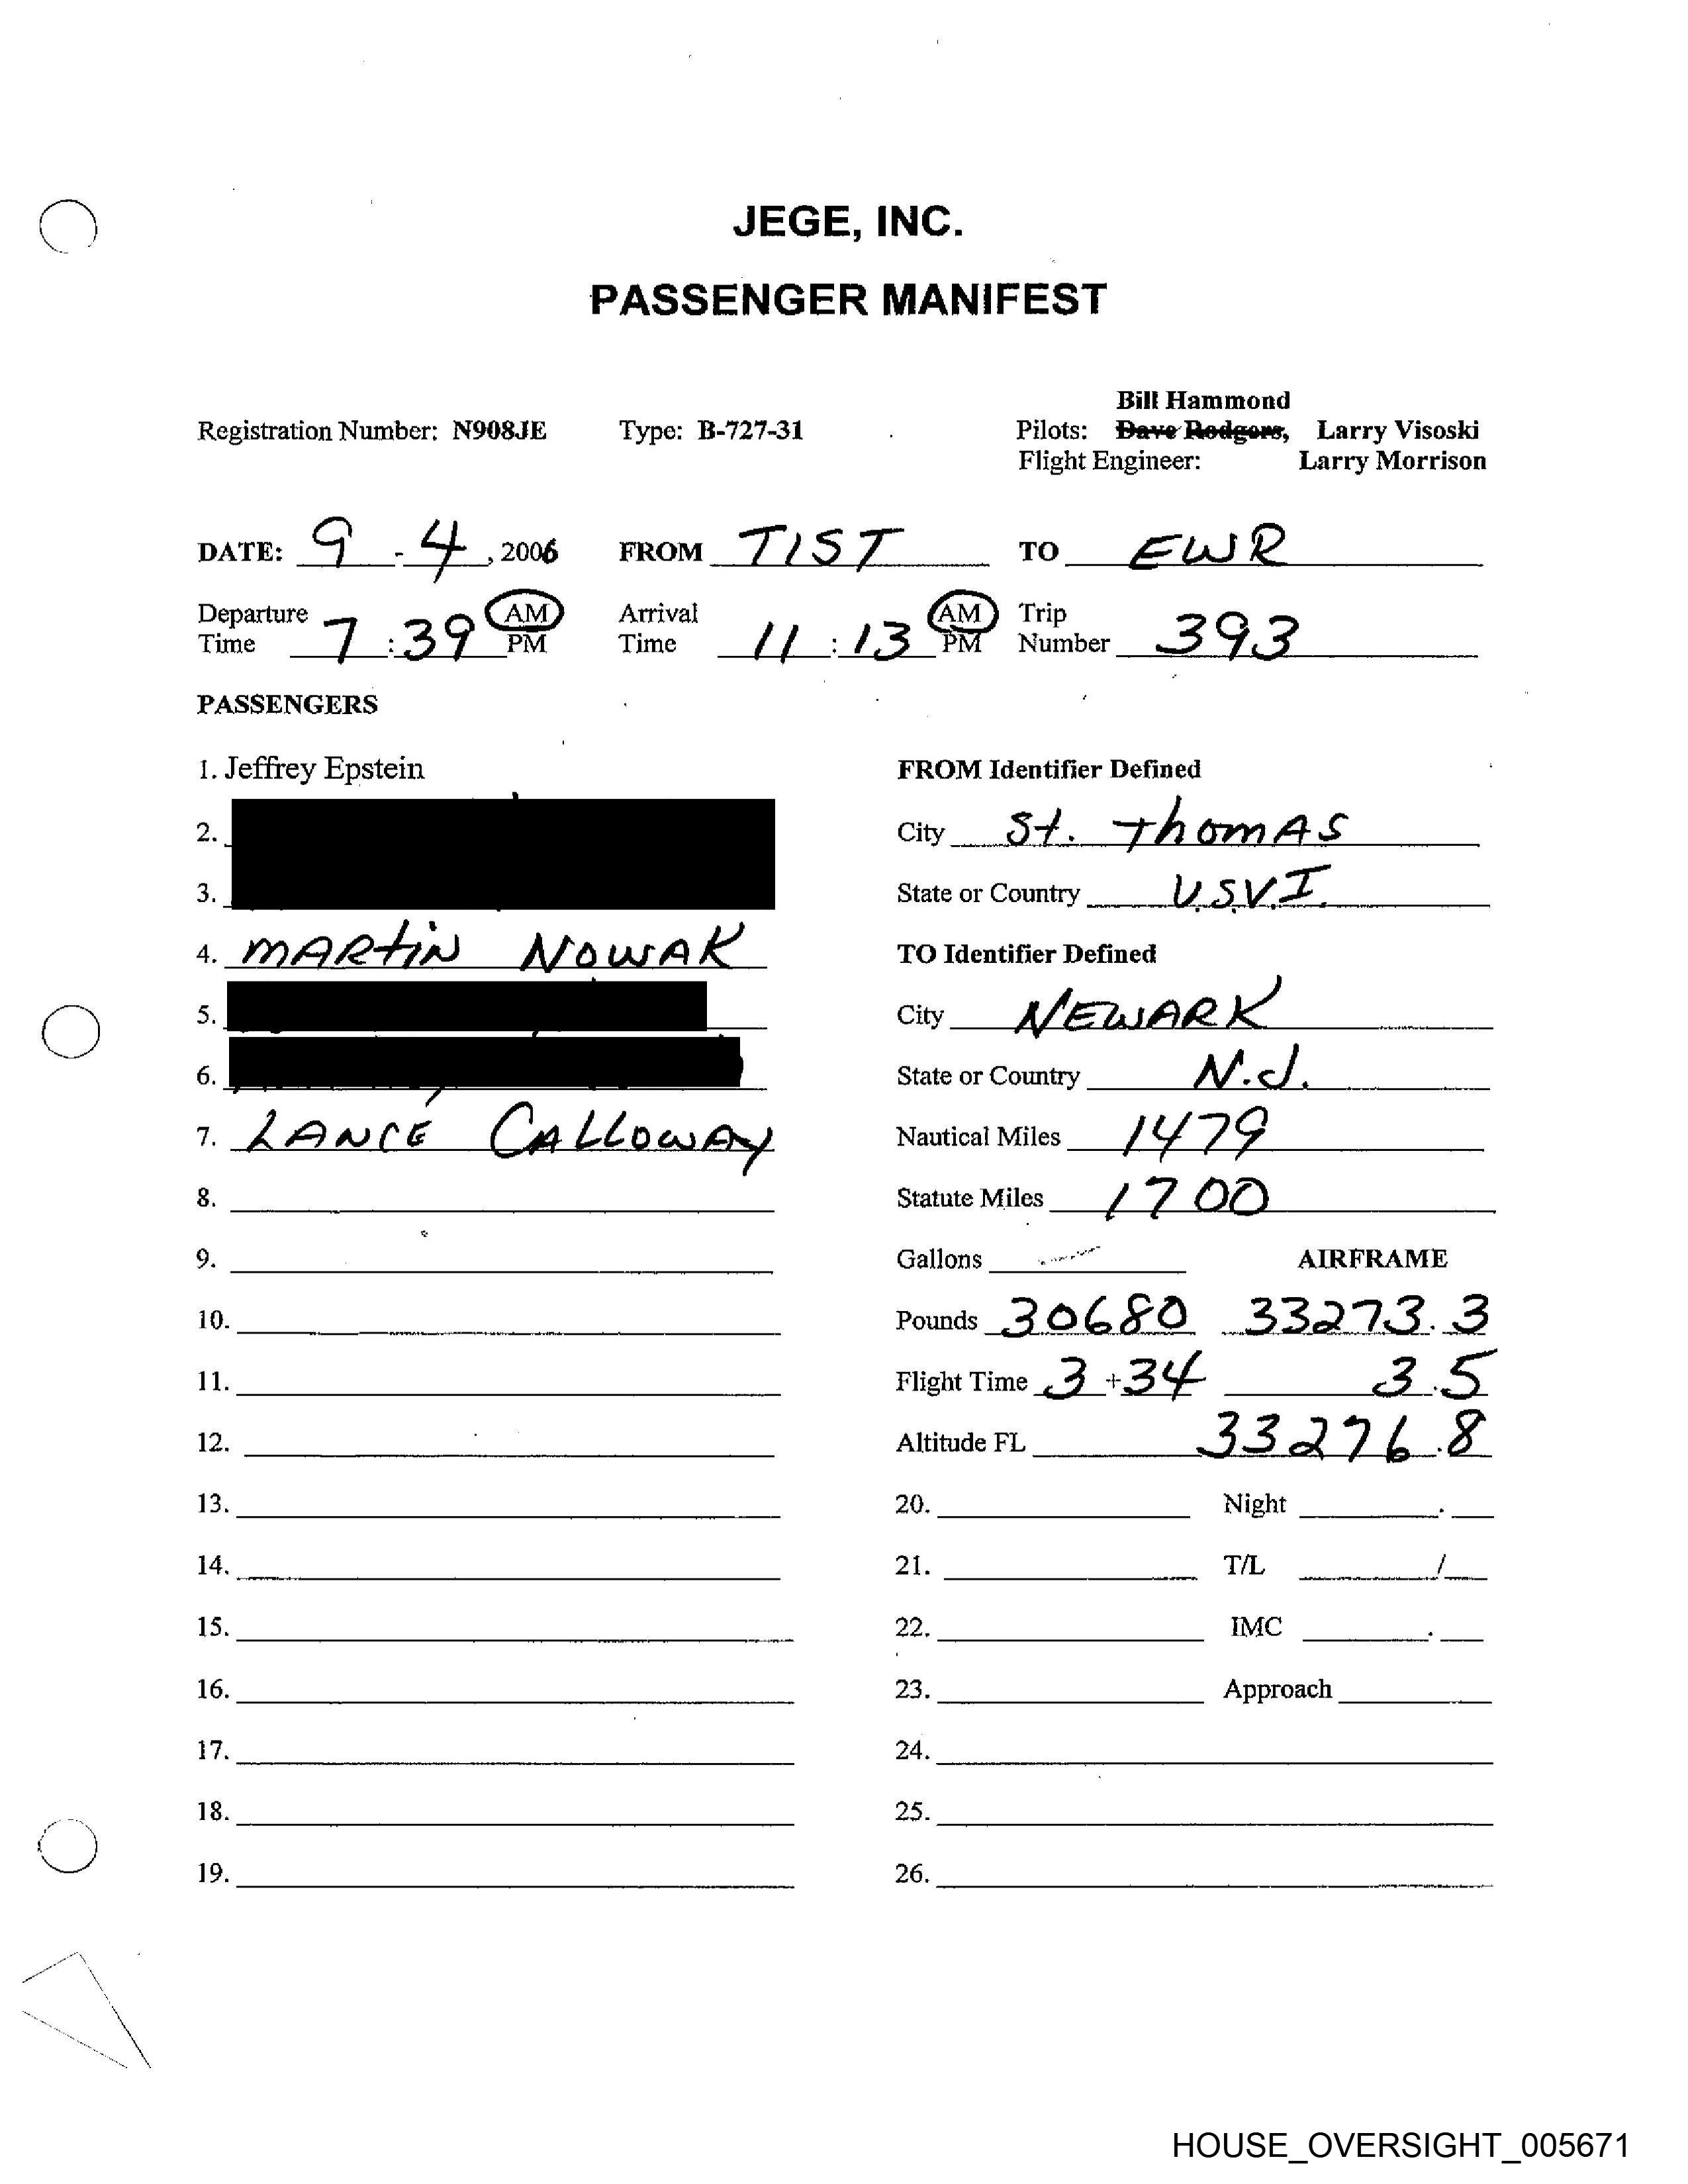 JEGE, INC.
PASSENGER MANIFEST
Bill Hammond
Registration Number: N908JE Type: B-727-31 Pilots: Dave Rodgers, Larry Visoski
Flight Engineer: Larry Morrison
DATE: 9 - 4, 2006 FROM TIST TO EWR
Departure Time 7:39 AM PM Arrival Time 11:13 AM PM Trip Number 393
PASSENGERS
1. Jeffrey Epstein
2.
3.
4. MARTIN NOWAK
5.
6.
7. LANCE CALLOWAY
8.
9.
10.
11.
12.
13.
14.
15.
16.
17.
18.
19.
FROM Identifier Defined
City St. Thomas
State or Country U.S.V.I.
TO Identifier Defined
City NEWARK
State or Country N.J.
Nautical Miles 1479
Statute Miles 1700
Gallons AIRFRAME
Pounds 30680 33273.3
Flight Time 3+34 3.5
Altitude FL 33276.8
20. Night .
21. T/L /
22. IMC .
23. Approach
24.
25.
26.
HOUSE_OVERSIGHT_005671